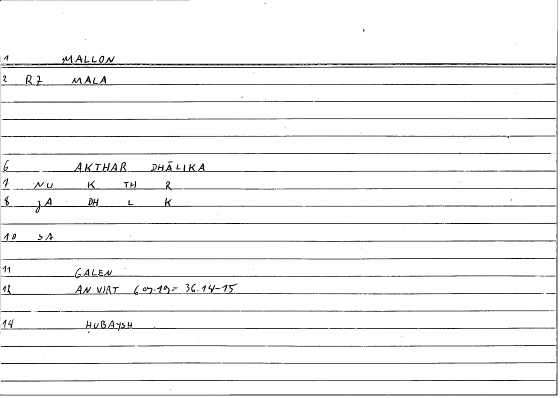 1 MALLON
2 R7 MALA
6 AKTHAR DHĀLIKA
7 NU K TH R
8 JA DH L K
10 SA
11 GALEN
12 AN VIRT 36.14-15
14 ḤUBAYSH